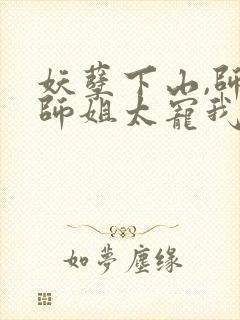 妖孽下山,師
師姐太寵我
如夢塵緣